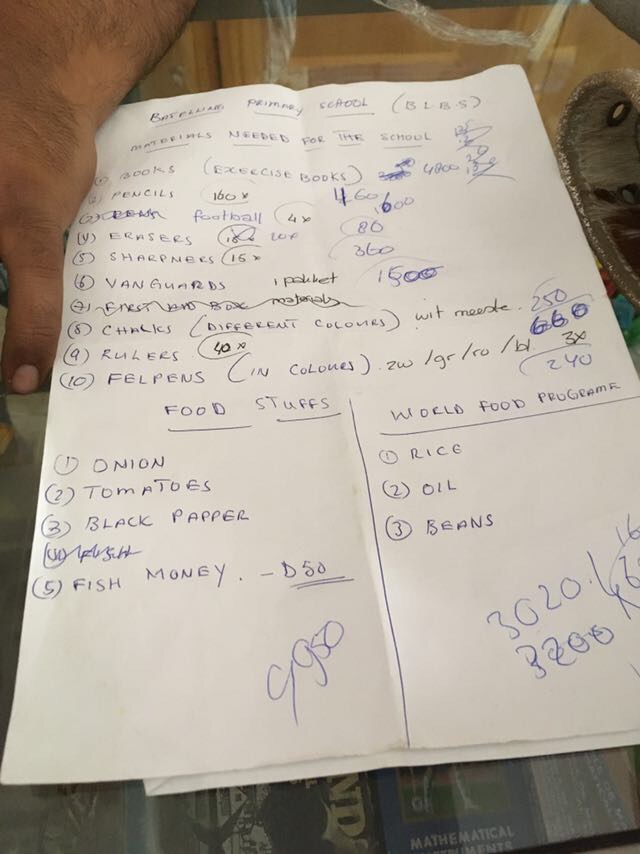 BATELLING PRIMARY SCHOOL (B L B S)
MATERIALS NEEDED FOR THE SCHOOL
(1) BOOKS (EXERCISE BOOKS) 4800
(2) PENCILS 160 x 460
(3) football 4x 1600
(4) ERASERS 20x 80
(5) SHARPNERS 15x 360
(6) VANGUARDS 1 pakket 1500
(7) FIRST AID BOX materials
(8) CHALKS (DIFFERENT COLOURS) wit meeste. 250
(9) RULERS 40x 660
(10) FELPENS (IN COLOURS). zw/gr/ro/bl. 3x 240
FOOD STUFFS
(1) ONION
(2) TOMATOES
(3) BLACK PAPPER
(5) FISH MONEY. - D50
9950
WORLD FOOD PROGRAME
(1) RICE
(2) OIL
(3) BEANS
3020.
3200
MATHEMATICAL